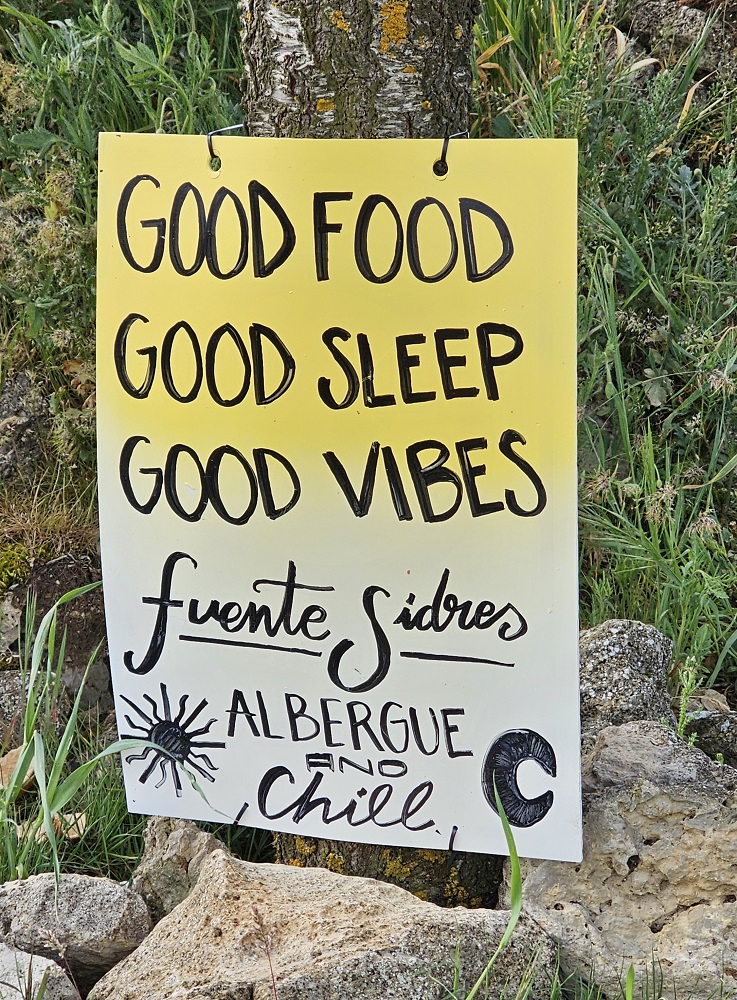 GOOD FOOD
GOOD SLEEP
GOOD VIBES
fuente Sidres
ALBERGUE
AND
Chill